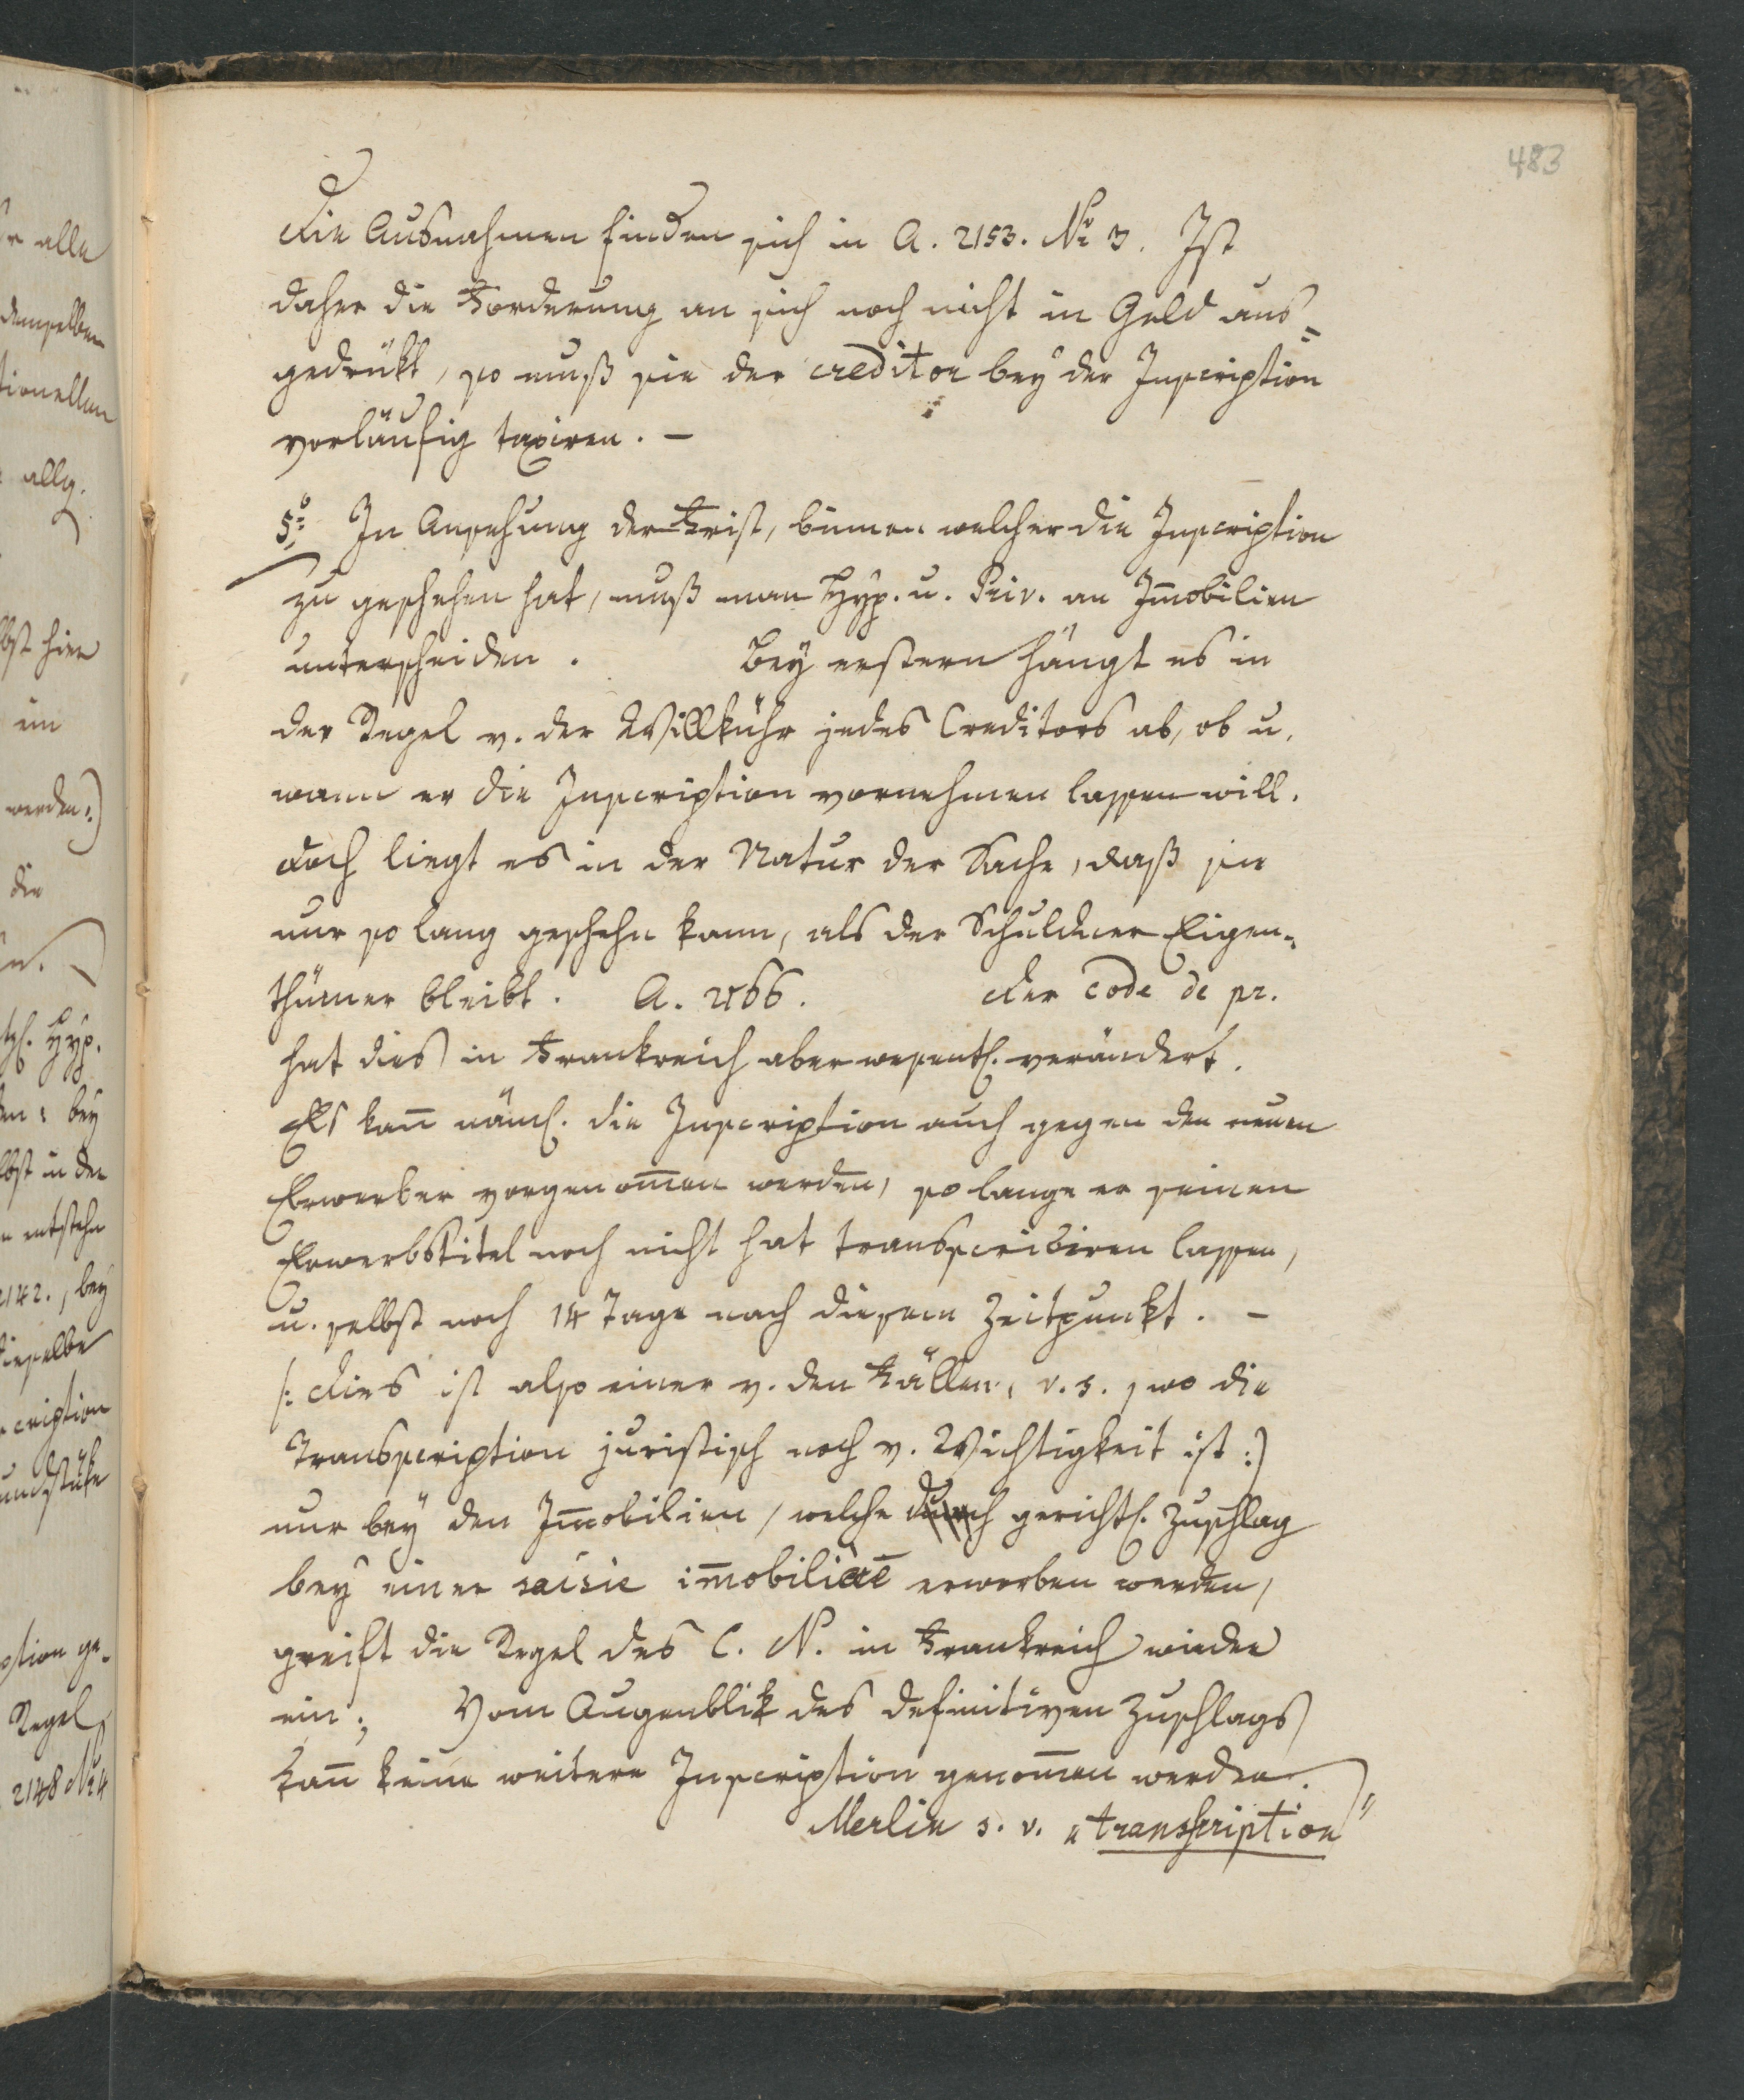 483
Die Ausnahmen finden sich in A. 2153. No 3. Ist
daher die Forderung an sich noch nicht in Geld aus=
gedrükt, so muß sie der creditor bey der Inscription
vorläufig taxiren. –
5o In Ansehung der Frist, binnen welcher die Inscription
zu geschehen hat, muß man Hyp. u. Priv. an Im̄obilien
unterscheiden. Bey erstern hängt es in
der Regel v. der Willkühr jedes Creditors ab, ob u.
wann er die Inscription vornehmen lassen will.
Doch liegt es in der Natur der Sache, daß sie
nur so lang geschehn kann, als der Schuldner Eigen=
thümer bleibt. A. 2166. Der code de pr.
hat dies in Frankreich aber wesentl. verändert.
Es kan̄ näml. die Inscription auch gegen den neuen
Erwerber vorgenom̄en werden, so lange er seinen
Erwerbstitel noch nicht hat transscribiren lassen,
u. selbst noch 14 Tage nach diesem Zeitpunkt. –
/: Dies ist also einer v. den Fällen, v. s. , wo die
Transscription juristisch noch v. Wichtigkeit ist :)
nur bey den Im̄obilien, welche durch gerichtl. Zuschlag
bey einer saisie im̄obiliere erworben werden,
greift die Regel des C. N. in Frankreich wieder
ein; Vom Augenblik des definitiven Zuschlags
kan̄ keine weitere Inscription genom̄en werden.
Merlin s. v. „transscription"
alle
denselben
tionellen
allg.
lbst hier
im
werden:)
die
Hyp.
bey
lbst in der
entstehn
2142., bey
dieselbe
scription
ption ge=
Regel
2148 No 4